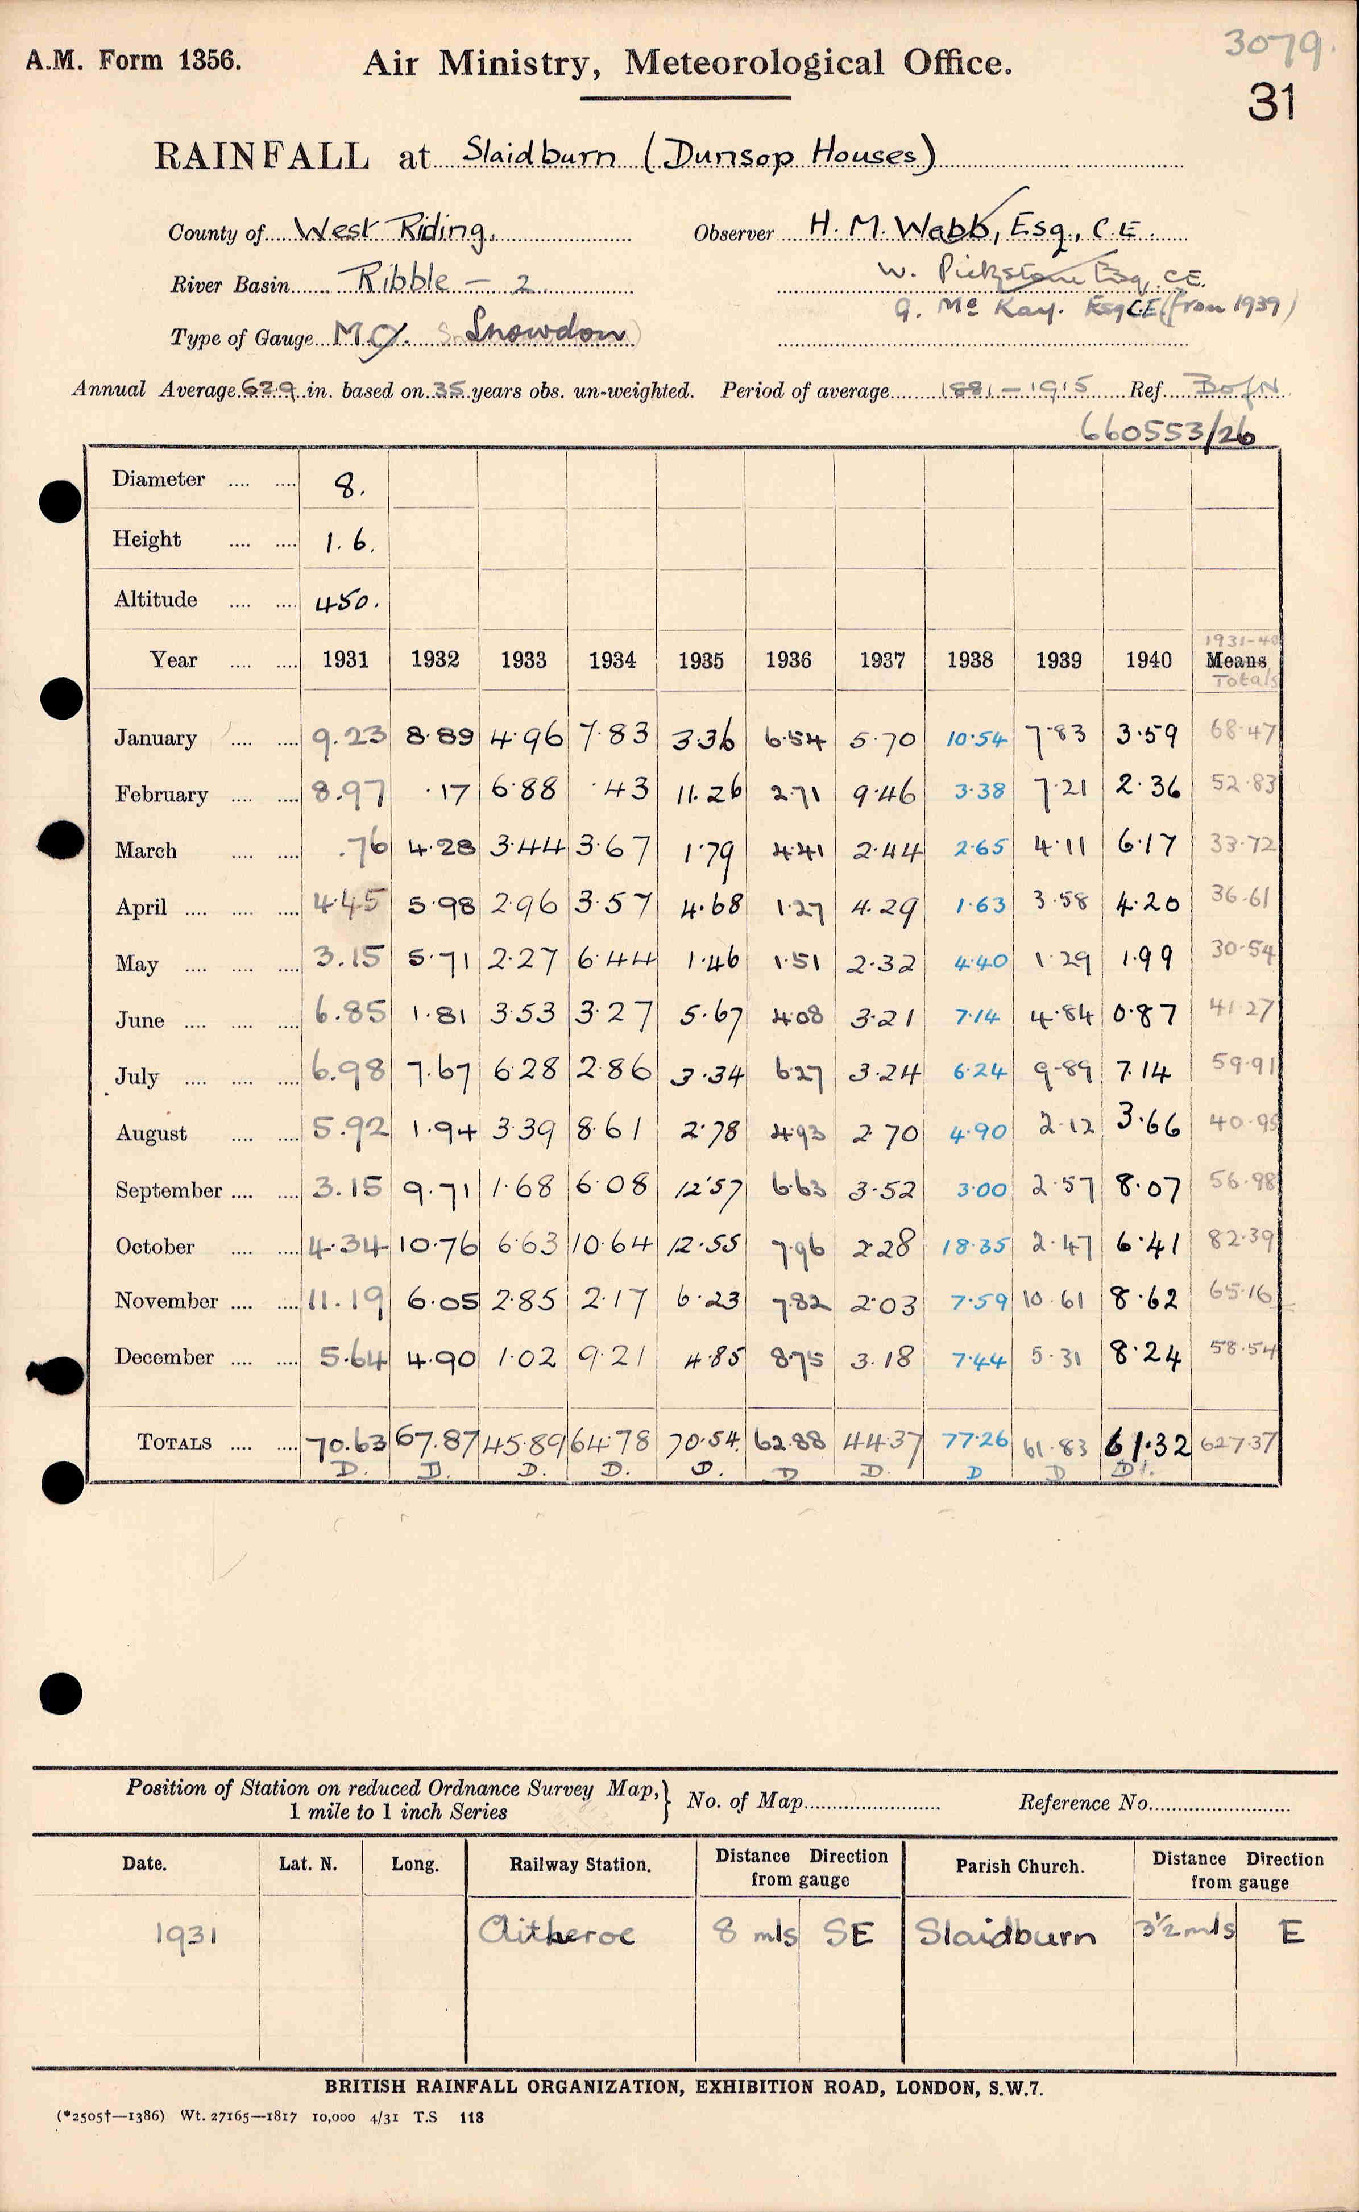 3079.
A.M. Form 1356. Air Ministry, Meteorological Office.
31
RAINFALL at Slaidburn (Dunsop Houses)
County of West Riding. Observer H. M. Webb, Esq., C.E.
River Basin Ribble — 2 W. Pickstone Esq. C.E.
G. Mc Kay. Esq C.E (from 1939)
Type of Gauge M.O. Snowdon
Annual Average 62.9 in. based on 35 years obs. un-weighted. Period of average 1881–1915 Ref. B of N
660553/26
Diameter .... .... 8.
Height .... .... 1.6.
Altitude .... .... 450.
1931-40
Year .... .... 1931 1932 1933 1934 1935 1936 1937 1938 1939 1940 Means
Totals
January .... .... 9.23 8.89 4.96 7.83 3.36 6.54 5.70 10.54 7.83 3.59 68.47
February .... .... 8.97 .17 6.88 .43 11.26 2.71 9.46 3.38 7.21 2.36 52.83
March .... .... .76 4.28 3.44 3.67 1.79 4.41 2.44 2.65 4.11 6.17 33.72
April .... .... .... 4.45 5.98 2.96 3.57 4.68 1.27 4.29 1.63 3.58 4.20 36.61
May .... .... .... 3.15 5.71 2.27 6.44 1.46 1.51 2.32 4.40 1.29 1.99 30.54
June .... .... .... 6.85 1.81 3.53 3.27 5.67 4.08 3.21 7.14 4.84 0.87 41.27
July .... .... .... 6.98 7.67 6.28 2.86 3.34 6.27 3.24 6.24 9.89 7.14 59.91
August .... .... 5.92 1.94 3.39 8.61 2.78 4.93 2.70 4.90 2.12 3.66 40.95
September .... .... 3.15 9.71 1.68 6.08 12.57 6.63 3.52 3.00 2.57 8.07 56.98
October .... .... 4.34 10.76 6.63 10.64 12.55 7.96 2.28 18.35 2.47 6.41 82.39
November .... .... 11.19 6.05 2.85 2.17 6.23 7.82 2.03 7.59 10.61 8.62 65.16
December .... .... 5.64 4.90 1.02 9.21 4.85 8.75 3.18 7.44 5.31 8.24 58.54
TOTALS .... .... 70.63 67.87 45.89 64.78 70.54. 62.88 44.37 77.26 61.83 61.32 627.37
D. D. D. D. D. D D. D D D1.
Position of Station on reduced Ordnance Survey Map, } No. of Map Reference No.
1 mile to 1 inch Series
Date. Lat. N. Long. Railway Station. Distance Direction from gauge Parish Church. Distance Direction from gauge
1931 Clitheroe 8 mls SE Slaidburn 3½ mls E
BRITISH RAINFALL ORGANIZATION, EXHIBITION ROAD, LONDON, S.W.7.
(*2505†—1386) Wt. 27165—1817 10,000 4/31 T.S 118